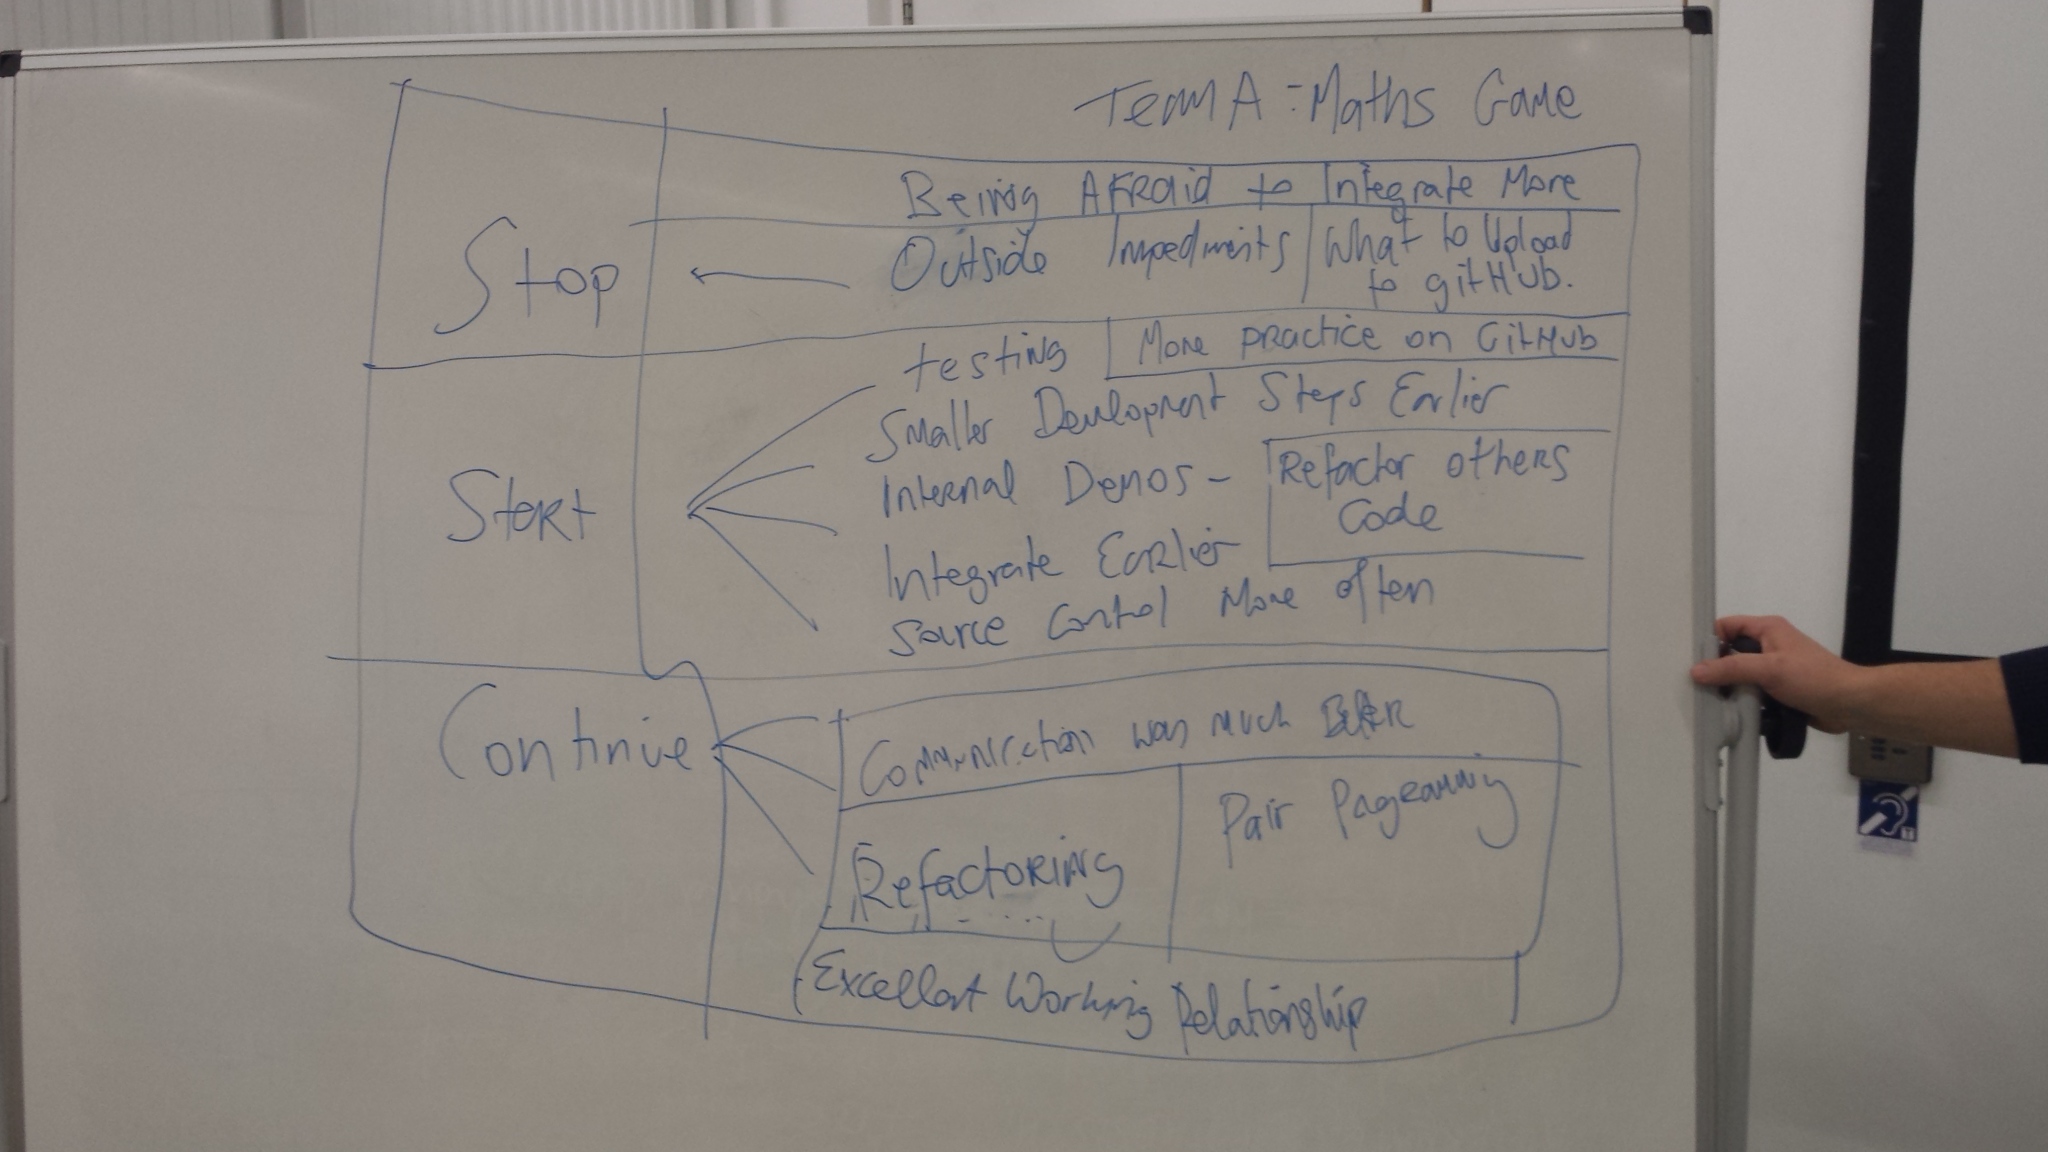 Team A : Maths Game
Stop
Being Afraid to Integrate More
Outside Impediments
What to Upload
to gitHUb.
Start
testing
More practice on GitHub
Smaller Development Steps Earlier
Internal Demos -
Refactor others
Code
Integrate Earlier
Source Control More often
Continue
Communication was much Better
Refactoring
Pair Programming
Excellent Working Relationship